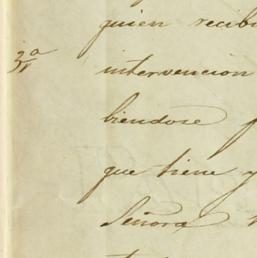 quien recib
3ª intervencion
biendose
que tiene y
Señora